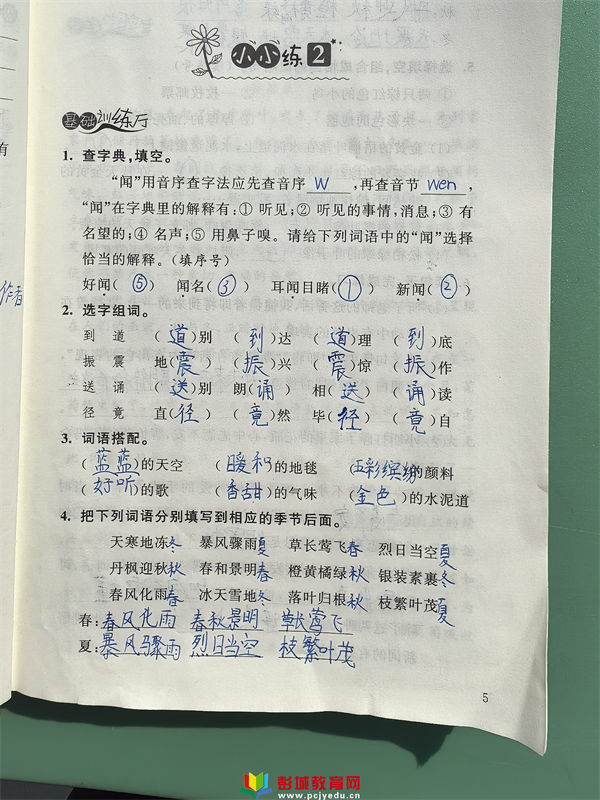 小小练2
基础训练厅
1. 查字典,填空。
“闻”用音序查字法应先查音序 W ,再查音节 wen ,
“闻”在字典里的解释有:① 听见;② 听见的事情,消息;③ 有
名望的;④ 名声;⑤ 用鼻子嗅。请给下列词语中的“闻”选择
恰当的解释。(填序号)
好闻(⑤) 闻名(③) 耳闻目睹(①) 新闻(②)
2. 选字组词。
到 道 (道)别 (到)达 (道)理 (到)底
振 震 地(震) (振)兴 (震)惊 (振)作
送 诵 (送)别 朗(诵) 相(送) (诵)读
径 竟 直(径) (竟)然 毕(径) (竟)自
3. 词语搭配。
(蓝蓝)的天空 (暖和)的地毯 (五彩缤纷)的颜料
(好听)的歌 (香甜)的气味 (金色)的水泥道
4. 把下列词语分别填写到相应的季节后面。
天寒地冻冬 暴风骤雨夏 草长莺飞春 烈日当空夏
丹枫迎秋秋 春和景明春 橙黄橘绿秋 银装素裹冬
春风化雨春 冰天雪地冬 落叶归根秋 枝繁叶茂夏
春:春风化雨 春秋景明 草长莺飞
夏:暴风骤雨 烈日当空 枝繁叶茂
5
作者
有
彭城教育网
www.pcjyedu.cn